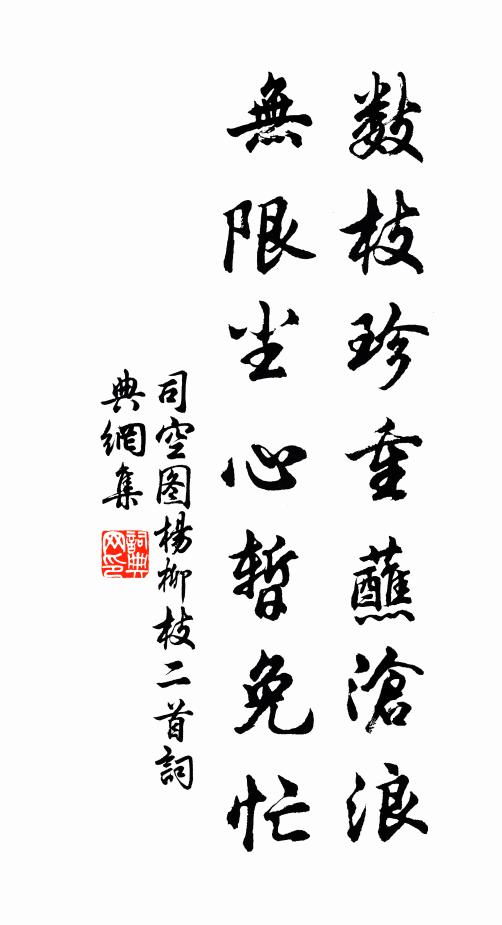 數枝珍重蘸滄浪
無限尘心暫免忙
司空图楊柳枝二首詞
典網集
詞典网印